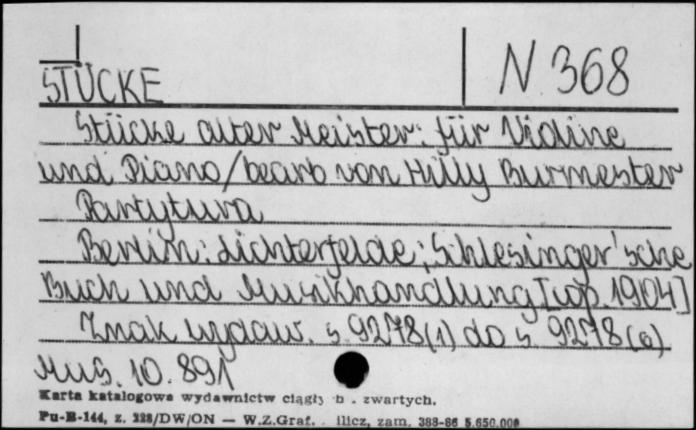 STÜCKE
N 368
Stücke alter Meister: für Violine
und Piano/bearb von Hilly Burmester
Partytura
Berlin: Lichterfelde; Schlesinger'sche
Buch und Musikhandlung [cop. 1904]
Znak wydaw. s. 9278(1) do s. 9278(6)
Mus. 10. 891
Karta katalogowa wydawnictw ciągły zwartych.
Pu-B-144, z. 228/DW/ON — W.Z.Graf. zam. 388-86 5.650.000